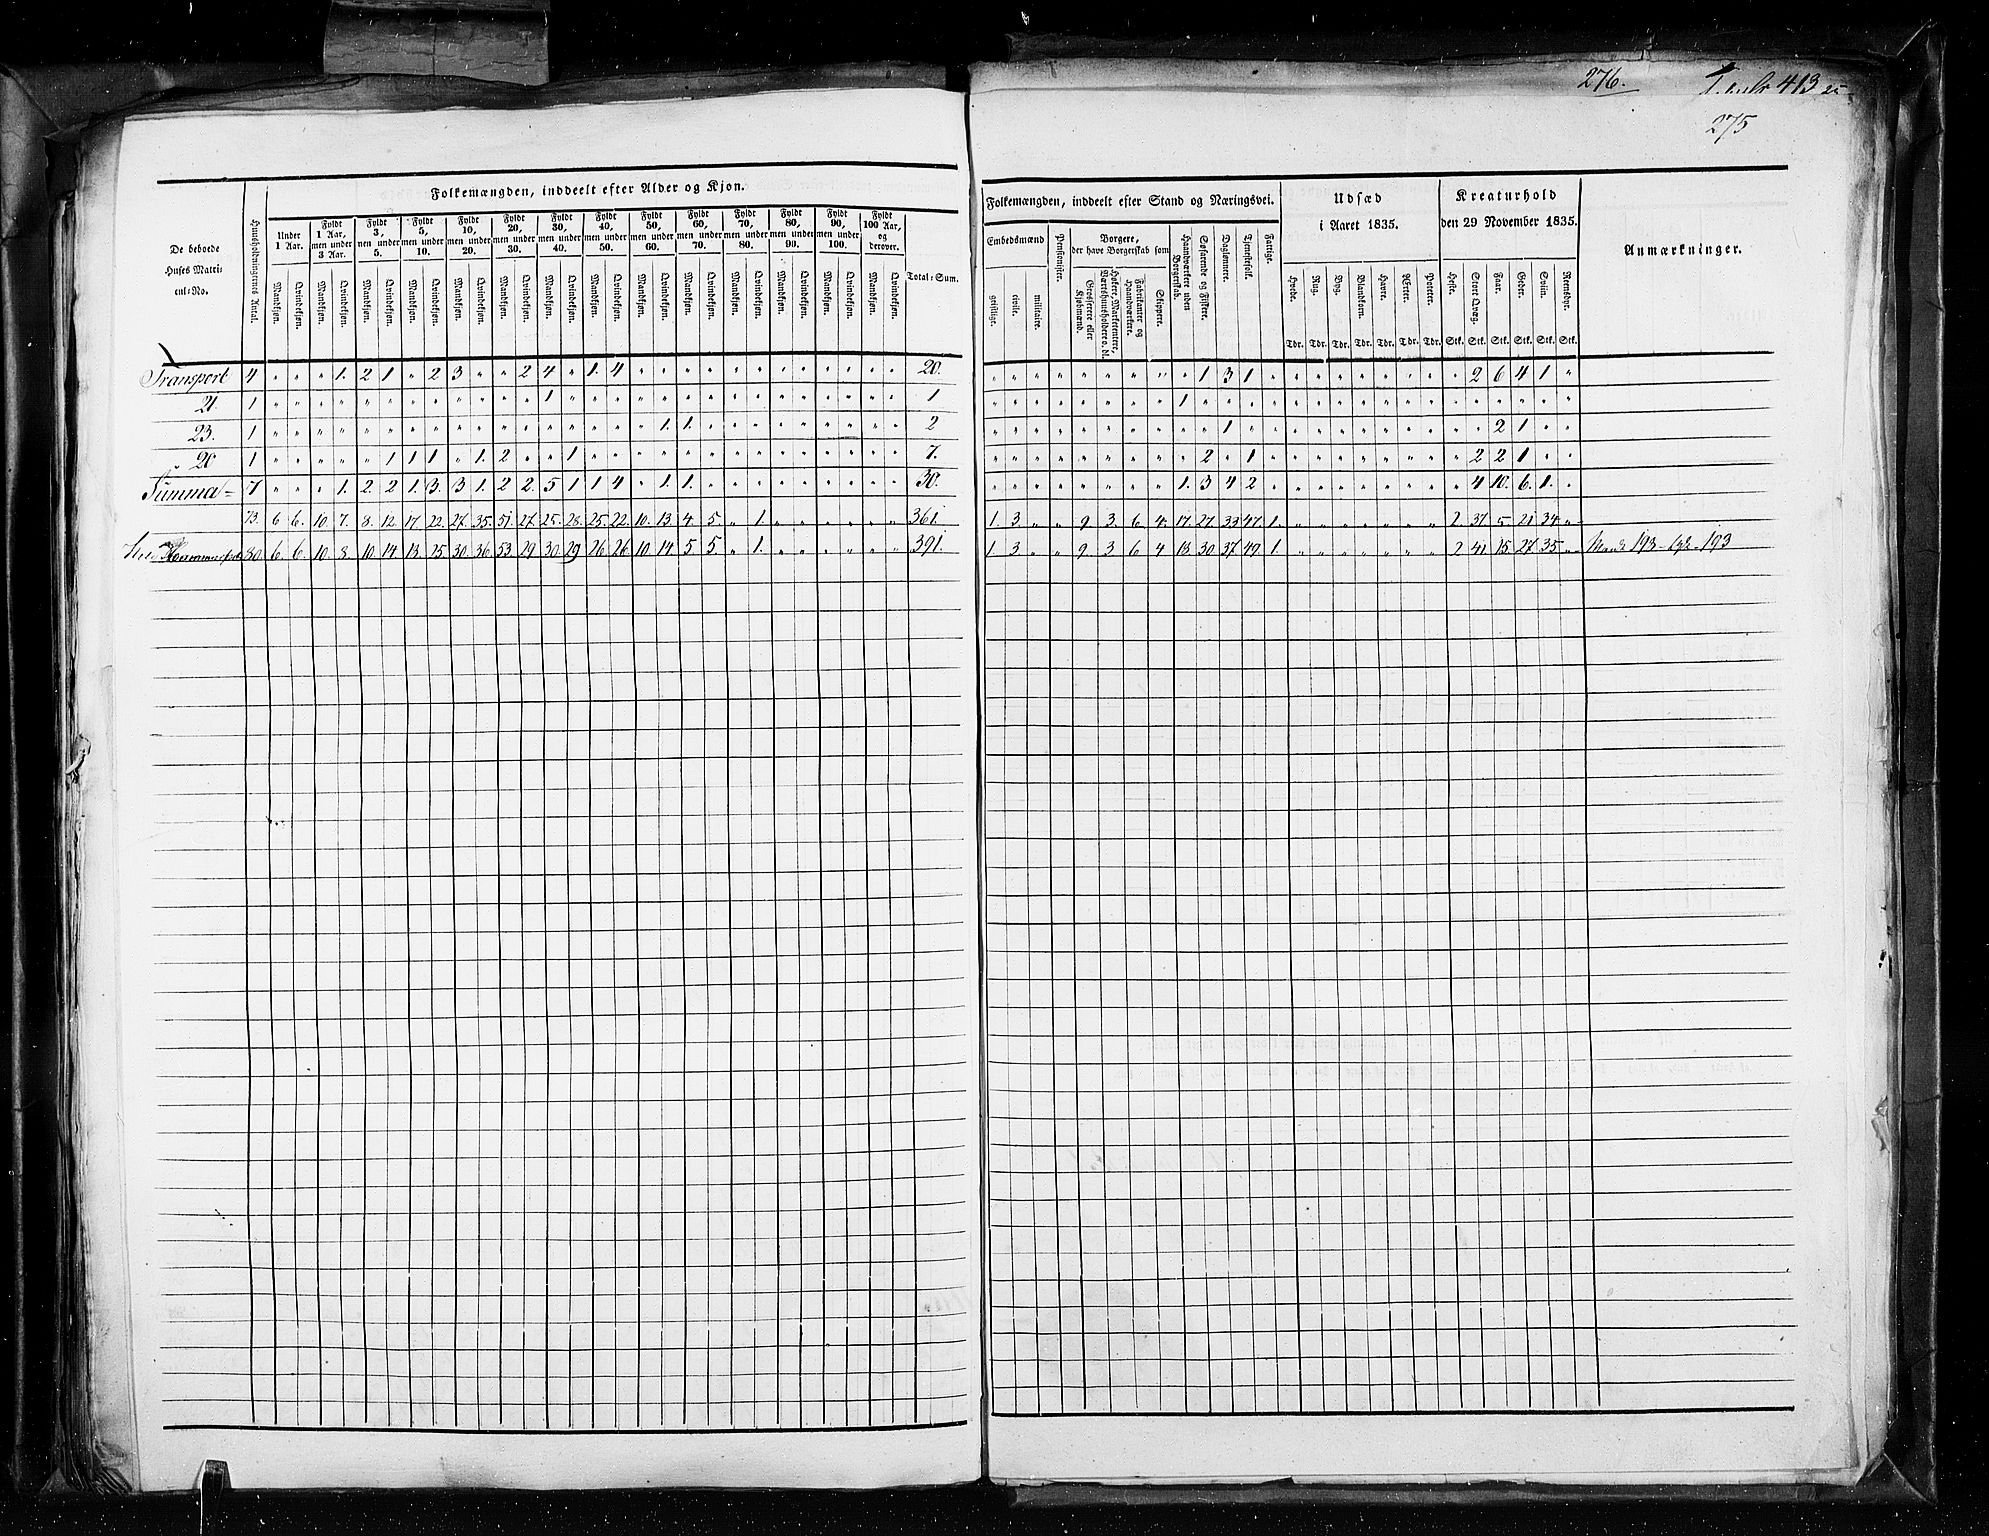 276.
413
275
Folkemængden, inddeelt efter Alder og Kjøn.
De beboede Huses Matricul=No.
Huusholdningernes Antal.
Under 1 Aar.
Fyldt 1 Aar, men under 3 Aar.
Fyldt 3, men under 5.
Fyldt 5, men under 10.
Fyldt 10, men under 20.
Fyldt 20, men under 30.
Fyldt 30, men under 40.
Fyldt 40, men under 50.
Fyldt 50, men under 60.
Fyldt 60, men under 70.
Fyldt 70, men under 80.
Fyldt 80, men under 90.
Fyldt 90, men under 100.
Fyldt 100 Aar, og derover.
Mandkjøn. Qvindekjøn. Mandkjøn. Qvindekjøn. Mandkjøn. Qvindekjøn. Mandkjøn. Qvindekjøn. Mandkjøn. Qvindekjøn. Mandkjøn. Qvindekjøn. Mandkjøn. Qvindekjøn. Mandkjøn. Qvindekjøn. Mandkjøn. Qvindekjøn. Mandkjøn. Qvindekjøn. Mandkjøn. Qvindekjøn. Mandkjøn. Qvindekjøn. Mandkjøn. Qvindekjøn. Mandkjøn. Qvindekjøn.
Total=Sum.
Transport 4 " " " 1. 2 1 " 2 3 " " 2 4 " 1. 4 " " " " " " " " " " " " 20.
21. 1 " " " " " " " " " " " " 1 " " " " " " " " " " " " " " " 1
23. 1 " " " " " " " " " " " " " " " " " 1. 1. " " " " " " " " " 2
20 1 " " " " " 1 1 1 " 1. 2 " " 1 " " " " " " " " " " " " " " 7.
Summa= 7 " " " 1. 2. 2 1. 3. 3 1. 2 2. 5 1 1 4 " 1. 1. " " " " " " " " " 30.
73. 6 6. 10. 7. 8. 12. 17. 22. 27. 35. 51. 27. 25. 28. 25. 22. 10. 13. 4. 5. " 1. " " " " " " 361.
80. 6. 6. 10 8. 10 14. 18. 25. 30. 36 53 29 30. 29 26 26 10 14 5 5. " 1. " " " " " " 391.
Folkemængden, inddeelt efter Stand og Næringsvei.
Embedsmænd
geistlige. civile. militaire.
Pensionister.
Borgere, der have Borgerskab som
Grosserere eller Kjøbmænd.
Høkere, Marketentere, Værtshuusholdere o. dl.
Fabrikanter og Haandværkere.
Skippere.
Haandværkere uden Borgerskab.
Søfarende og Fiskere.
Daglønnere.
Tjenestefolk.
Fattige.
Udsæd i Aaret 1835.
Hvede. Rug. Byg. Blandkorn. Havre. Erter. Poteter.
Tdr. Tdr. Tdr. Tdr. Tdr. Tdr. Tdr.
Kreaturhold den 29 November 1835.
Heste. Stort Qvæg. Faar. Geder. Sviin. Rensdyr.
Stk. Stk. Stk. Stk. Stk. Stk.
Anmærkninger.
" " " " " " " " " 1 3 1 " " " " " " " " " 2 6 4 1 "
" " " " " " " " 1 " " " " " " " " " " " " " " " " "
" " " " " " " " " " 1 " " " " " " " " " " " 2 1 " "
" " " " " " " " " 2 " 1 " " " " " " " " " 2 2 1 " "
" " " " " " " " 1. 3 4 2 " " " " " " " " " 4 10. 6. 1. "
1. 3 " " 9 3. 6 4. 17. 27. 33 47. 1. 2 37 5 21 34. "
1 3 " " 9 3 6 4 18. 30. 37 49. 1. " " " " " " " 2 41 15 27 35 "